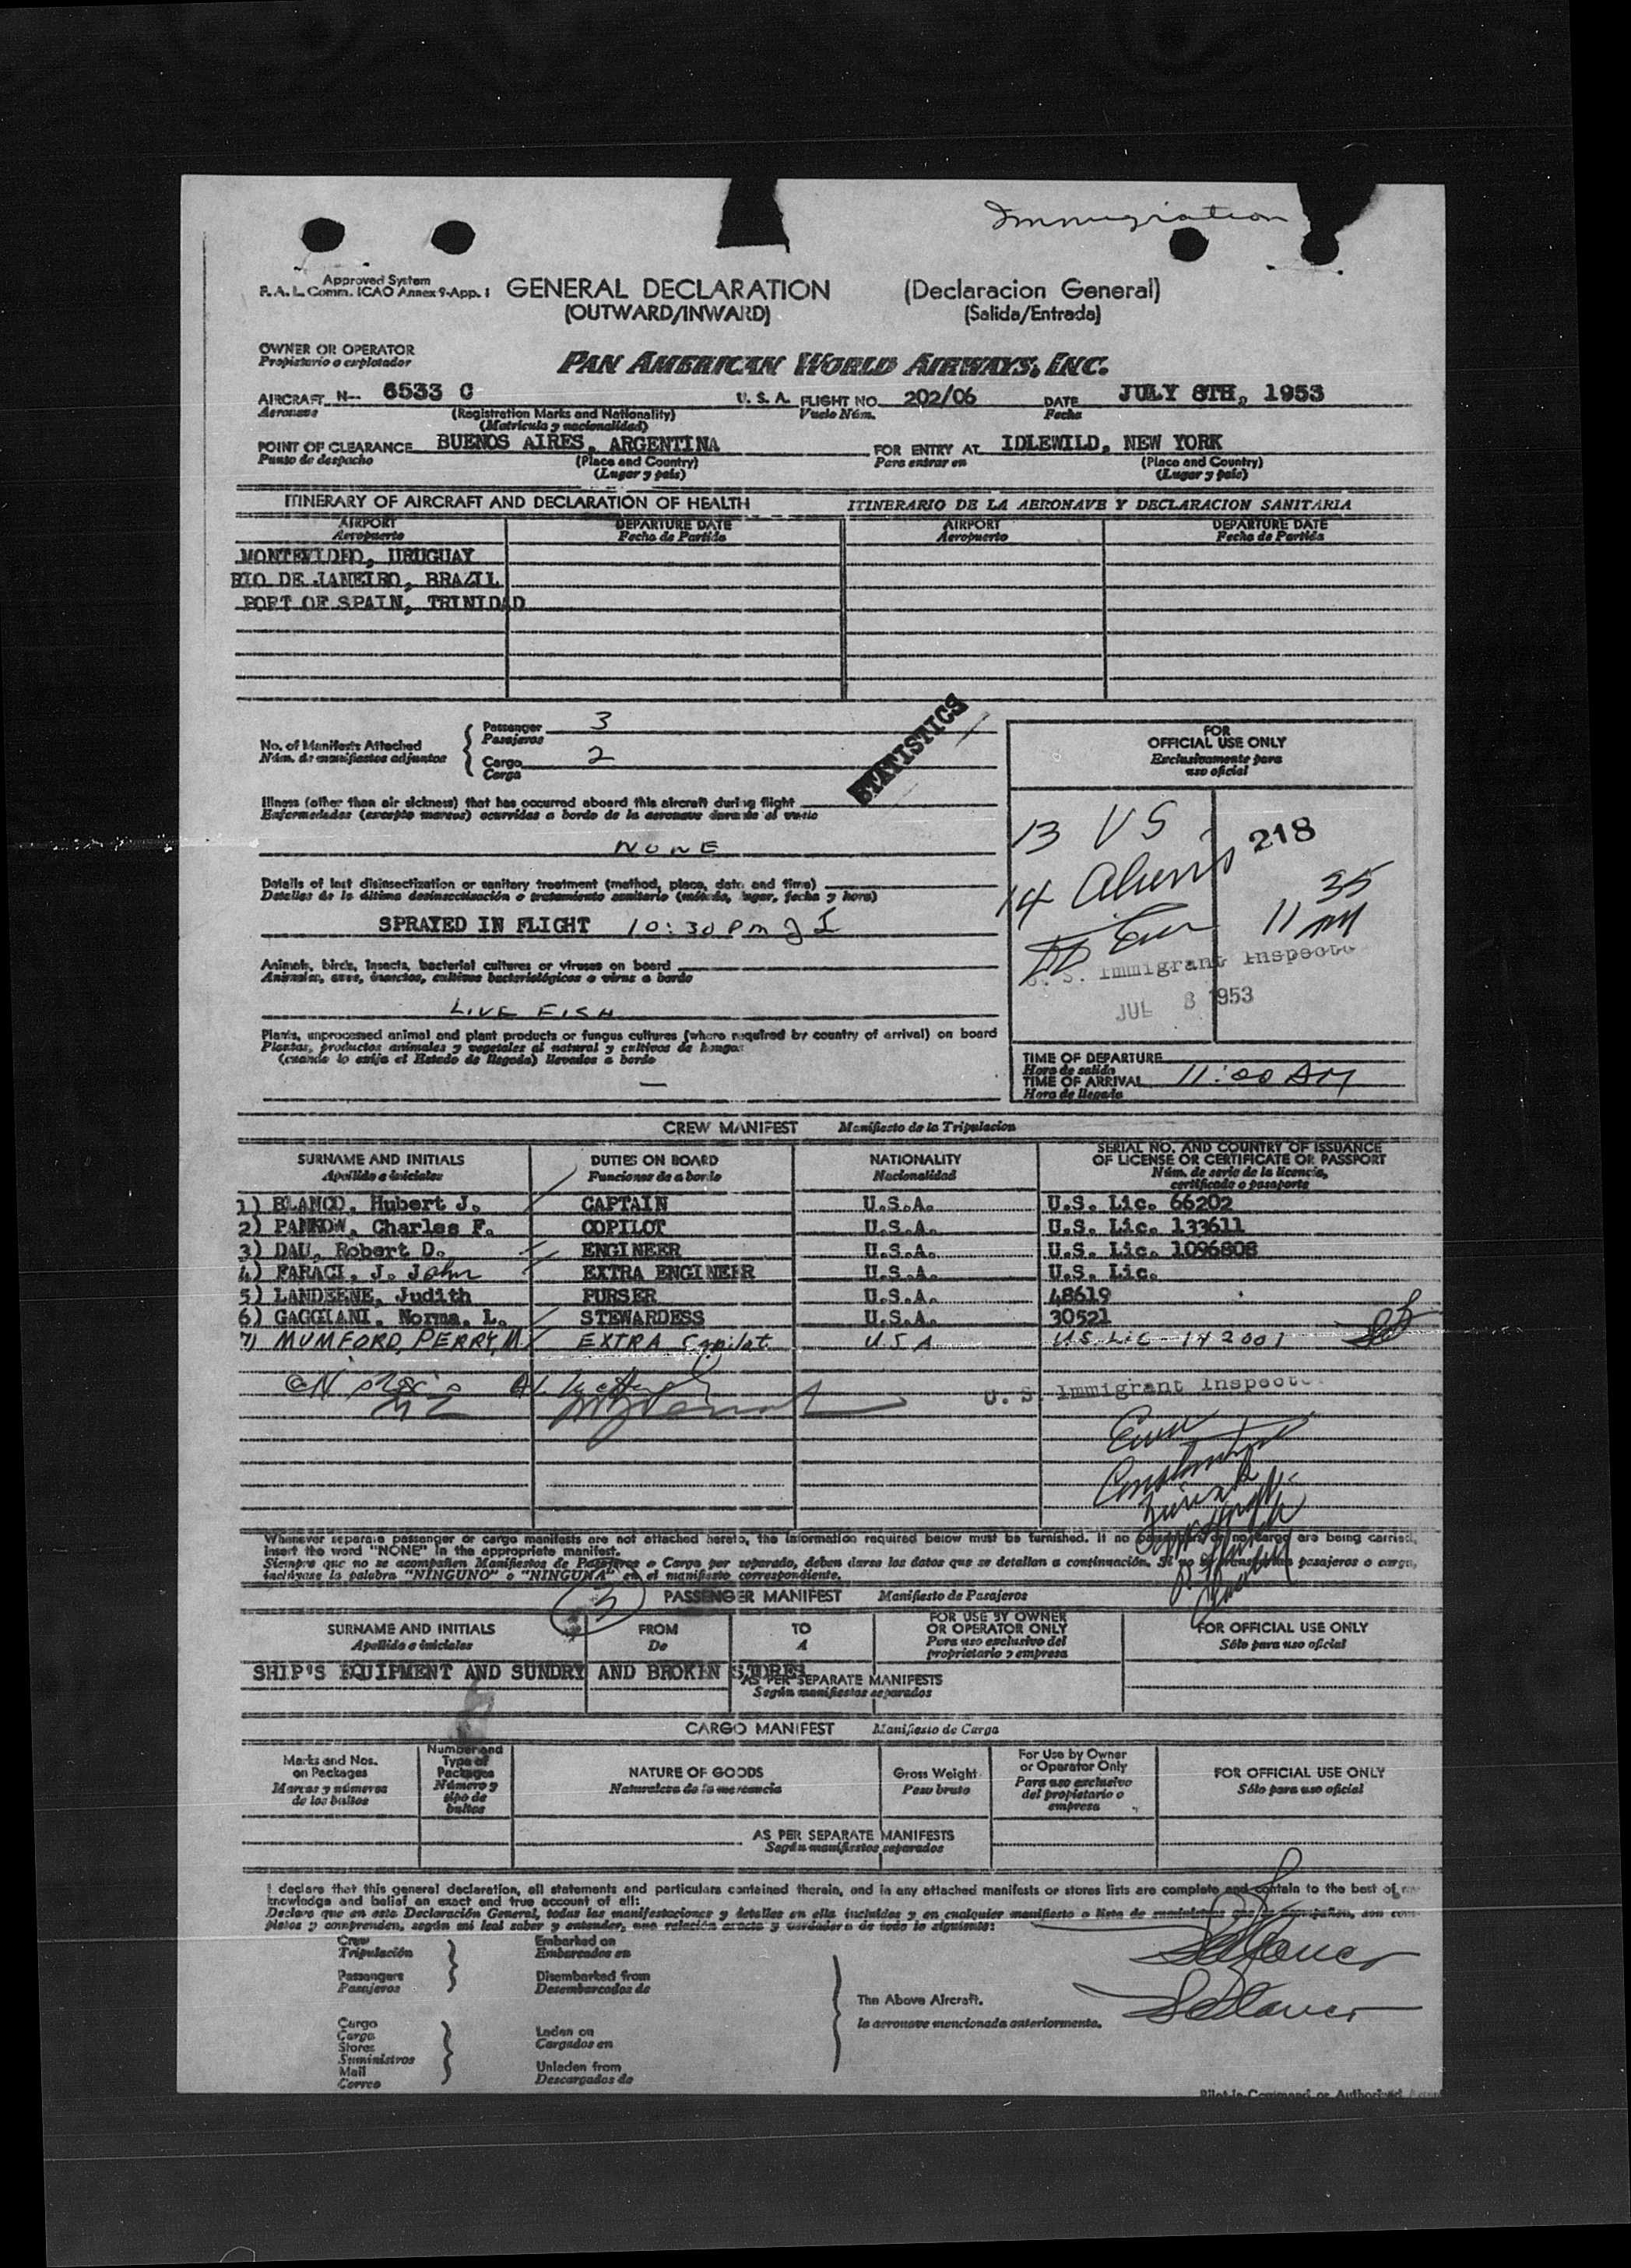 Immigration
Approved System
F. A. L. Comm. ICAO Annex 9-App. 1
GENERAL DECLARATION (Declaracion General)
(OUTWARD/INWARD) (Salida/Entrada)
OWNER OR OPERATOR
Propietario o explotador
PAN AMERICAN WORLD AIRWAYS, INC.
AIRCRAFT N-- 6533 C U. S. A. FLIGHT NO. 202/06 DATE JULY 8TH, 1953
Aeronave (Registration Marks and Nationality) Vuelo Núm. Fecha
(Matricula y nacionalidad)
POINT OF CLEARANCE BUENOS AIRES, ARGENTINA FOR ENTRY AT IDLEWILD, NEW YORK
Punto de despacho (Place and Country) Para entrar en (Place and Country)
(Lugar y país) (Lugar y país)
ITINERARY OF AIRCRAFT AND DECLARATION OF HEALTH ITINERARIO DE LA AERONAVE Y DECLARACION SANITARIA
AIRPORT DEPARTURE DATE AIRPORT DEPARTURE DATE
Aeropuerto Fecha de Partida Aeropuerto Fecha de Partida
MONTEVIDEO, URUGUAY
RIO DE JANEIRO, BRAZIL
PORT OF SPAIN, TRINIDAD
STATISTICS
No. of Manifests Attached
Núm. de manifiestos adjuntos
Passenger 3
Pasajeros
Cargo 2
Carga
Illness (other than air sickness) that has occurred aboard this aircraft during flight
Enfermedades (excepto mareos) ocurridas a bordo de la aeronave durante el vuelo
NONE
Details of last disinsectization or sanitary treatment (method, place, date and time)
Detalles de la última desinsectización o tratamiento sanitario (método, lugar, fecha y hora)
SPRAYED IN FLIGHT 10:30 PM
Animals, birds, insects, bacterial cultures or viruses on board
Animales, aves, insectos, cultivos bacteriológicos o virus a bordo
LIVE FISH
Plants, unprocessed animal and plant products or fungus cultures (where required by country of arrival) on board
Plantas, productos animales y vegetales al natural y cultivos de hongos
(cuando lo exija el Estado de llegada) llevados a bordo
—
FOR
OFFICIAL USE ONLY
Exclusivamente para
uso oficial
13 US
218
14 Aliens
11 35
AM
U. S. Immigrant Inspector
JUL 8 1953
TIME OF DEPARTURE
Hora de salida
TIME OF ARRIVAL 11:00 AM
Hora de llegada
CREW MANIFEST Manifiesto de la Tripulacion
SURNAME AND INITIALS DUTIES ON BOARD NATIONALITY SERIAL NO. AND COUNTRY OF ISSUANCE
OF LICENSE OR CERTIFICATE OR PASSPORT
Apellido e iniciales Funciones de a bordo Nacionalidad Núm. de serie de la licencia,
certificado o pasaporte
1) BLANCO, Hubert J. CAPTAIN U.S.A. U.S. Lic. 66202
2) PANKOW, Charles F. COPILOT U.S.A. U.S. Lic. 133611
3) DAU, Robert D. ENGINEER U.S.A. U.S. Lic. 1096808
4) FARACI, J. John EXTRA ENGINEER U.S.A. U.S. Lic.
5) LANDERNE, Judith PURSER U.S.A. 48619
6) GAGGIANI, Norma, L. STEWARDESS U.S.A. 30521
7) MUMFORD, PERRY, M. EXTRA Copilot U.S.A U.S. LIC 142001
U. S. Immigrant Inspector
Whenever separate passenger or cargo manifests are not attached hereto, the information required below must be furnished. If no passengers or no cargo are being carried,
insert the word "NONE" in the appropriate manifest.
Siempre que no se acompañen Manifiestos de Pasajeros o Carga por separado, deben darse los datos que se detallan a continuación. Si no se transportan pasajeros o carga,
inclúyase la palabra "NINGUNO" o "NINGUNA" en el manifiesto correspondiente.
3
PASSENGER MANIFEST Manifiesto de Pasajeros
SURNAME AND INITIALS FROM TO FOR USE BY OWNER
OR OPERATOR ONLY FOR OFFICIAL USE ONLY
Apellido e iniciales De A Para uso exclusivo del
propietario o empresa Sólo para uso oficial
SHIP'S EQUIPMENT AND SUNDRY AND BROKEN STORES
AS PER SEPARATE MANIFESTS
Según manifiestos separados
CARGO MANIFEST Manifiesto de Carga
Marks and Nos.
on Packages
Marcas y números
de los bultos
Number and
Type of
Packages
Número y
tipo de
bultos
NATURE OF GOODS
Naturaleza de la mercancia
Gross Weight
Peso bruto
For Use by Owner
or Operator Only
Para uso exclusivo
del propietario o
empresa
FOR OFFICIAL USE ONLY
Sólo para uso oficial
AS PER SEPARATE MANIFESTS
Según manifiestos separados
I declare that this general declaration, all statements and particulars contained therein, and in any attached manifests or stores lists are complete and contain to the best of my
knowledge and belief an exact and true account of all:
Declaro que en esta Declaración General, todas las manifestaciones y detalles en ella incluídos y en cualquier manifiesto o lista de suministros que la acompañan, son com-
pletos y comprenden, según mi leal saber y entender, una relación exacta y verdadera de todo lo siguiente:
Crew Embarked on
Tripulación Embarcados en
Passengers Disembarked from
Pasajeros Desembarcados de
The Above Aircraft.
la aeronave mencionada anteriormente.
Cargo Laden on
Carga Cargados en
Stores
Suministros
Mail Unladen from
Correo Descargados de
Pilot-in-Command or Authorized Agent